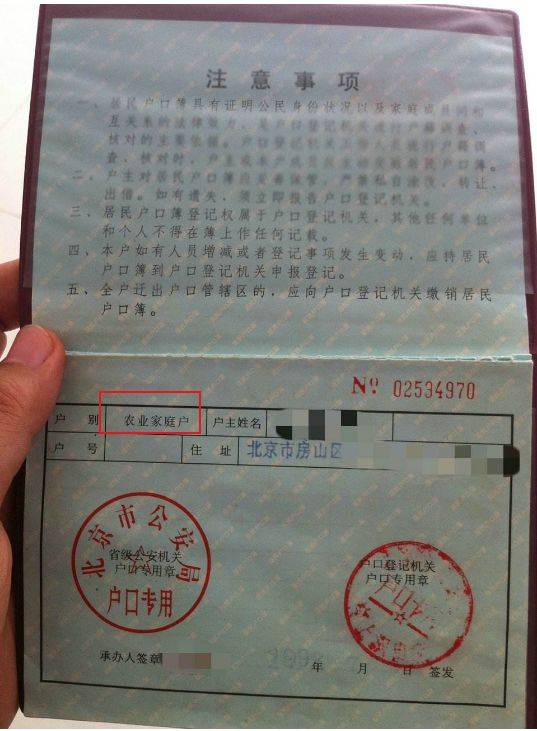 注意事项
一、居民户口簿具有证明公民身份状况以及家庭成员间相
互关系的法律效力，是户口登记机关进行户籍调查、
核对的主要依据。户口登记机关工作人员进行户籍调
查、核对时，户主或本户成员应主动交验居民户口簿。
二、户主对居民户口簿应妥善保管，严禁私自涂改、转让、
出借。如有遗失，须立即报告户口登记机关。
三、居民户口簿登记权属于户口登记机关，其他任何单位
和个人不得在簿上作任何记载。
四、本户如有人员增减或者登记事项发生变动，应持居民
户口簿到户口登记机关申报登记。
五、全户迁出户口管辖区的，应向户口登记机关缴销居民
户口簿。
№ 02534970
户别 农业家庭户 户主姓名
户号 住址 北京市房山区
北京市公安局
省级公安机关
户口专用章
户口专用
户口登记机关
户口专用章
承办人签章 年 月 日 签发